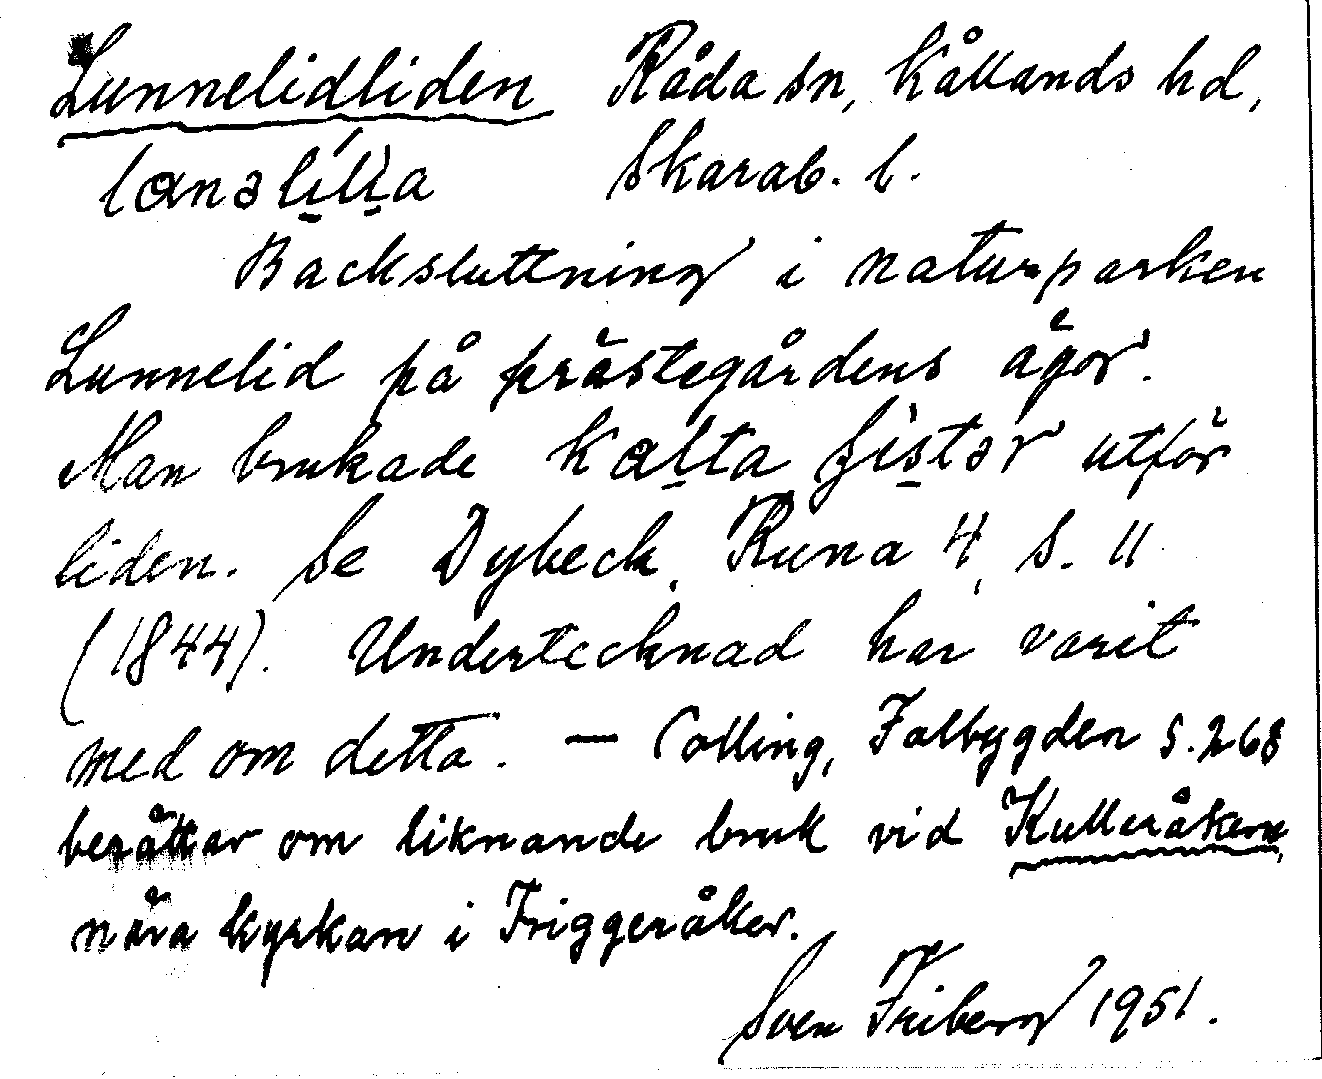 Lunnelidliden Råda sn, Kållands hd,
Skarab. l.
Backsluttning i naturparken
Lunnelid på prästegårdens ägor.
Man brukade kalta jistər utför
liden. Se Dybeck, Runa 4, s. 11
(1844). Undertecknad har varit
med om detta. — Colling, Falbygden s. 268
berättar om liknande bruk vid Kulleråkern
nära kyrkan i Friggeråker.
Sven Friberg 1951.